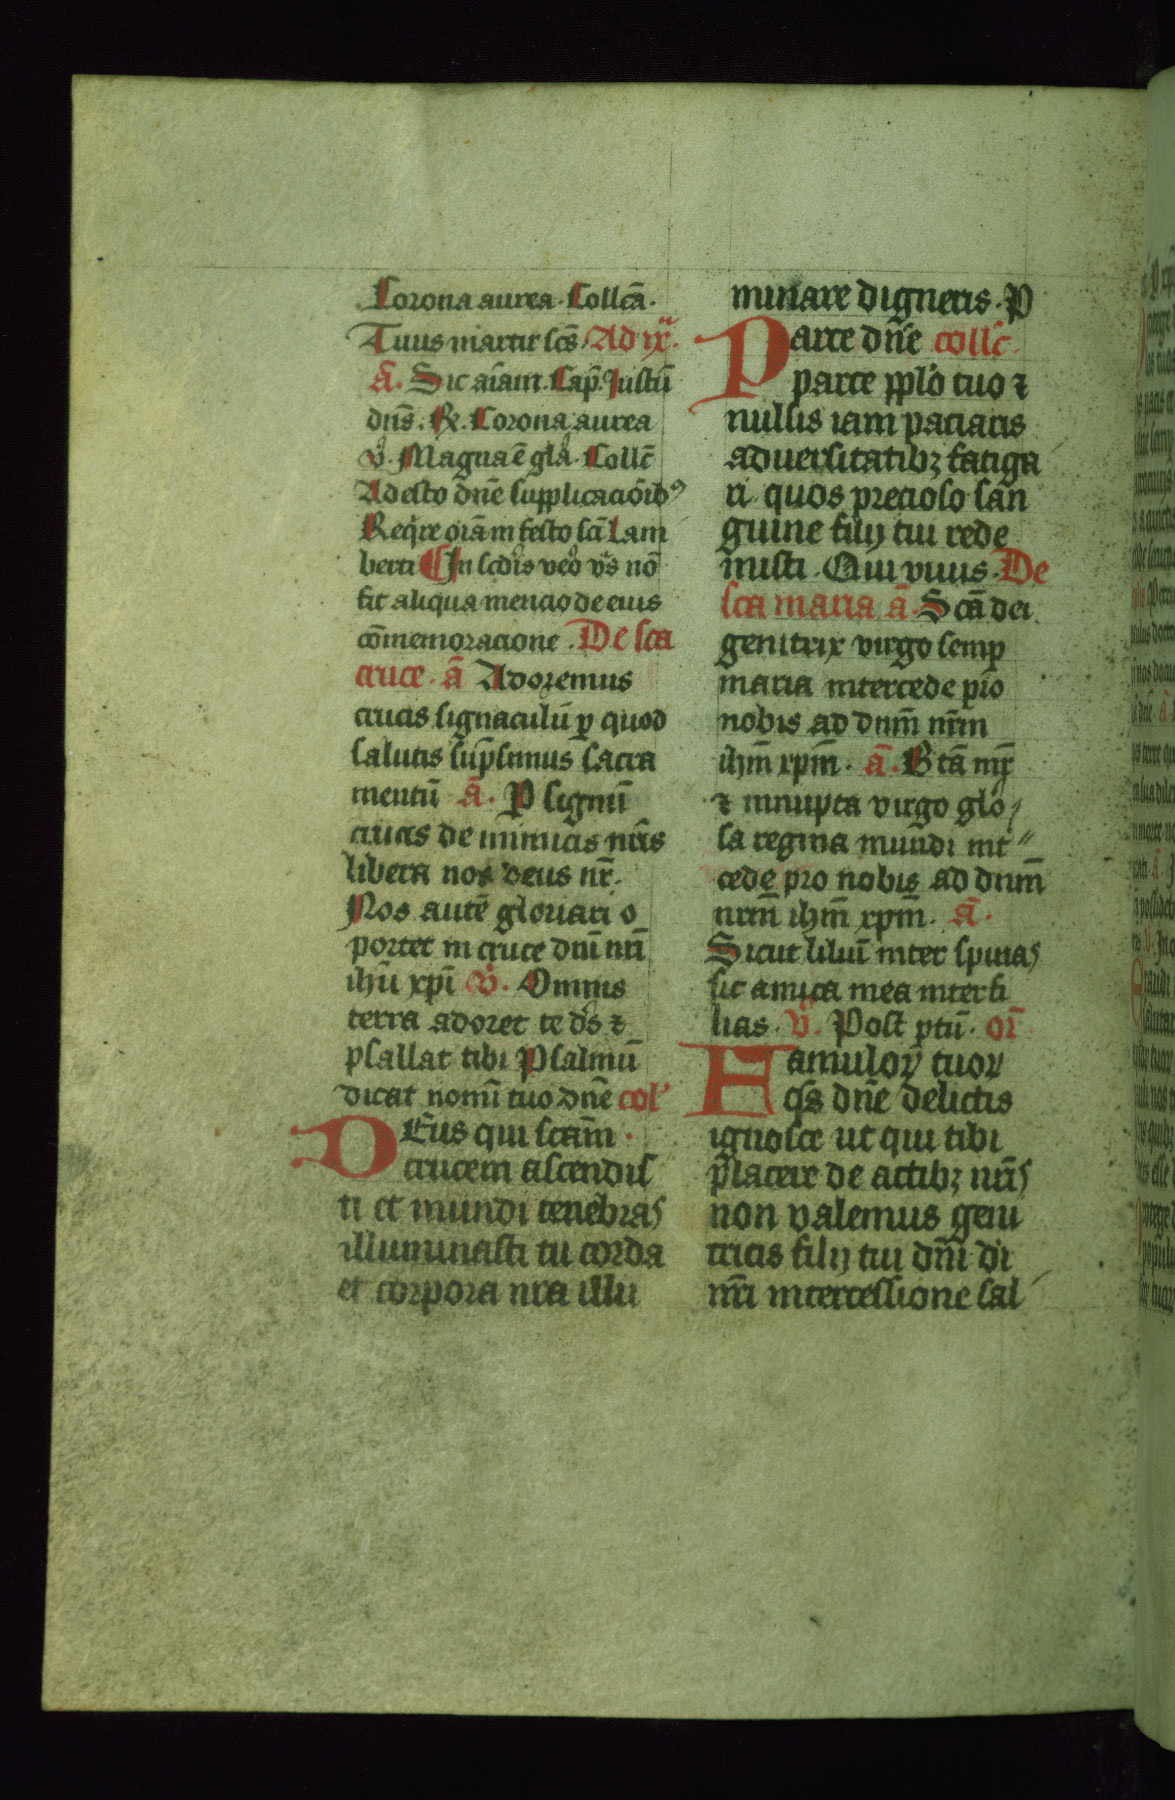 Corona aurea. Collcā.
Tuus martir scs̄. Ad ixᵃ.
ā. Sic aīam. Cap̄. Iustū
dn̄s. ℟. Corona aurea
v̊. Magna ē glā. Collc̄
Adesto dn̄e supplicaciōibꝰ
Reqͥre orām festo scī Lam
berti In scdīs veͦ vs̄ nō
fit aliqua mencio de eius
cōmemoracione. De sca
cruce. ā Adoremus
crucis signaculū ꝑ quod
salutis sūpsimus sacra
mentū ā. P signū
crucis de inimicis nr̄is
libera nos deus nr̄.
Nos autē gloriari o
portet in cruce dnī nrī
ihū xpī v̊. Omnis
terra adoret te ds̄ ⁊
psallat tibi Psalmū
dicat nomī tuo dn̄e col'
DEus qui scām
crucem ascendis
ti et mundi tenebras
illuminasti tu corda
et corpora nr̄a illu
minare digneris. P
Parce dn̄e collc̄
parce pplo tuo ⁊
nullis iam paciaris
aduersitatibꝫ fatiga
ri quos precioso san̄
guine filij tui rede
misti. Qui viuis. De
sca maria ā. Scā dei
genitrix virgo semꝑ
maria intercede pro
nobis ad dnm̄ nrm̄
ihm̄ xpm̄. ā. Btā mr̄
⁊ innupta virgo glo
sa regina mundi int
cede pro nobis ad dnm̄
nrm̄ ihm̄ xpm̄. ā.
Sicut liliū inter spinas
sic amica mea inter fi
lias. v̊. Post ꝑtū. or̄
Famuloꝝ tuoꝝ
qs̄ dn̄e delictis
ignosce ut qui tibi
placere de actibꝫ nrīs
non valemus geni
tricis filij tui dnī dī
nrī intercessione sal